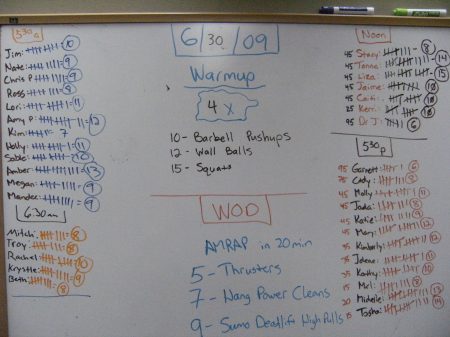 530a
Jim: 10
Nate: 9
Chris P 9
Ross 8
Lori: 11
Amy P: 12
Kim: 7
Holly: 11
Sable: 10
Amber: 13
Megan: 9
Mandee: 9
6:30am
Mitch: 8
Troy: 8
Rachel: 10
Krystle: 9
Beth: 8
6/30/09
Warmup
4x
10- Barbell Pushups
12- Wall Balls
15- Squats
WOD
AMRAP in 20 min
5- Thrusters
7- Hang Power Cleans
9- Sumo Deadlift High Pulls
Noon
45 Stacy: 8
45 Tanna: 14
45 Liza: 15
45 Jaime: 12
45 Caiti:
25 Kerri:
95 Dr J: 6
530p
95 Garrett: 6
Cody: 8
45 Molly 11
Jada: 8
Katie: 9
45 Mary: 12
Kimberly: 12
Jolene: 11
Kathy: 10
Michelle: 13
Tasha: 14